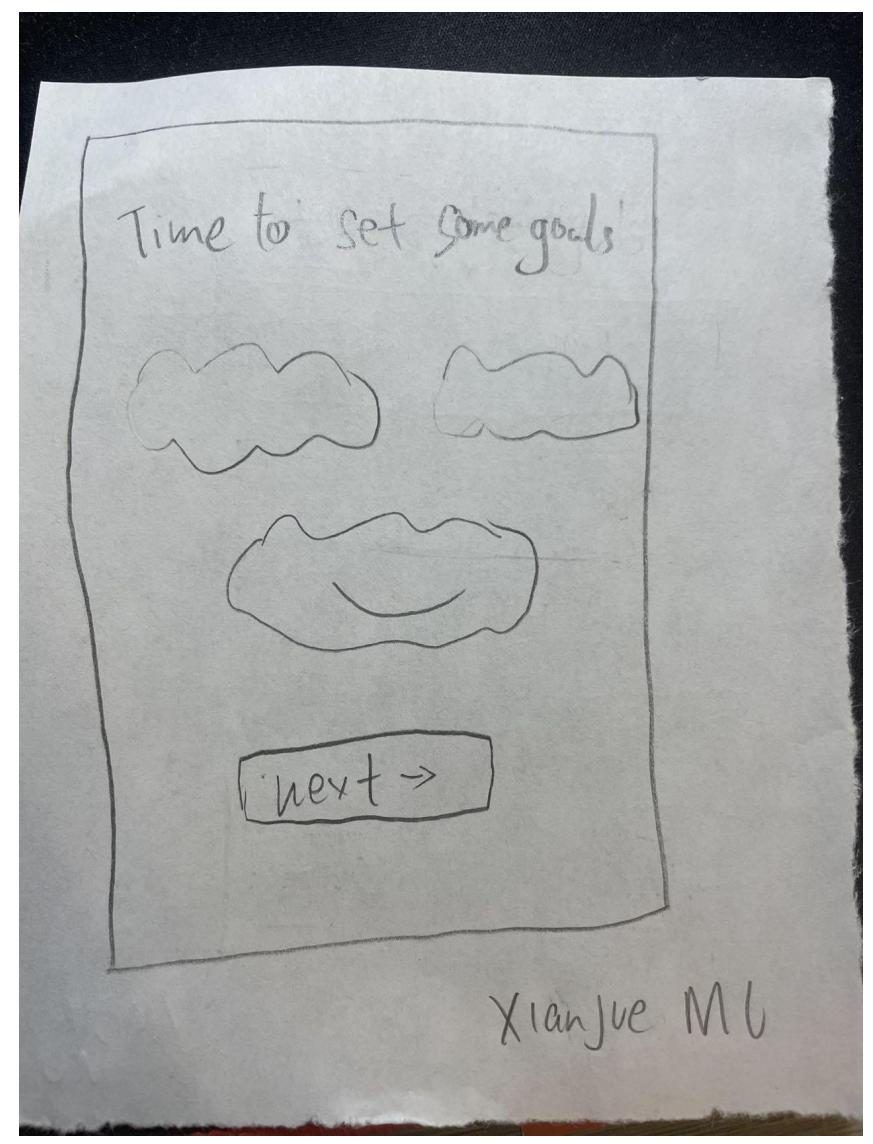 Time to set some goals
next →
Xianjue MU